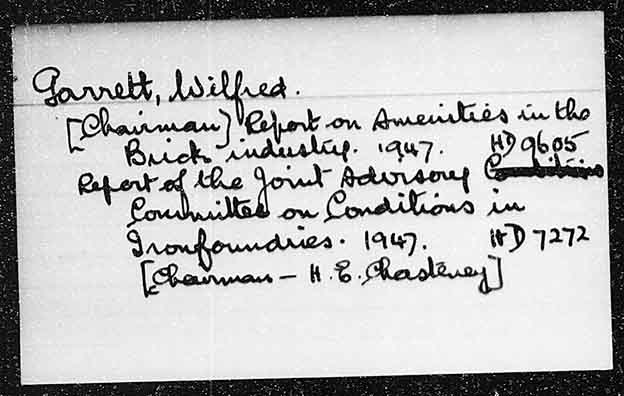 Garrett, Wilfred.
[Chairman] Report on Amenities in the
Brick industry. 1947. HD 9605
Report of the Joint Advisory
Committee on Conditions in
Ironfoundries. 1947. HD 7272
[Chairman - H. E. Chasteney]